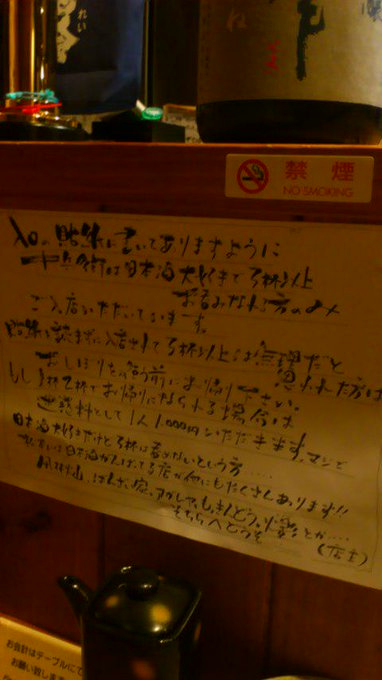 れい
禁煙
NO SMOKING
入口の貼紙に書いてありますように
日本酒大好きで3杯以上
お呑みなれる方のみ
ご入店をいただいています。
貼紙を読まずに入店して3杯以上は無理だと
思われた方は
おしぼりを出す前にお帰り下さい。
もし1杯2杯でお帰りになられる場合は
迷惑料として1人1,000円いただきます。マジで
日本酒大好きだけど3杯は呑めないという方.....
日本酒がんばってる店が他にもたくさんあります!!
とか....
そちらへどうぞ
(店主)
お会計はテーブルにて
お願い致します